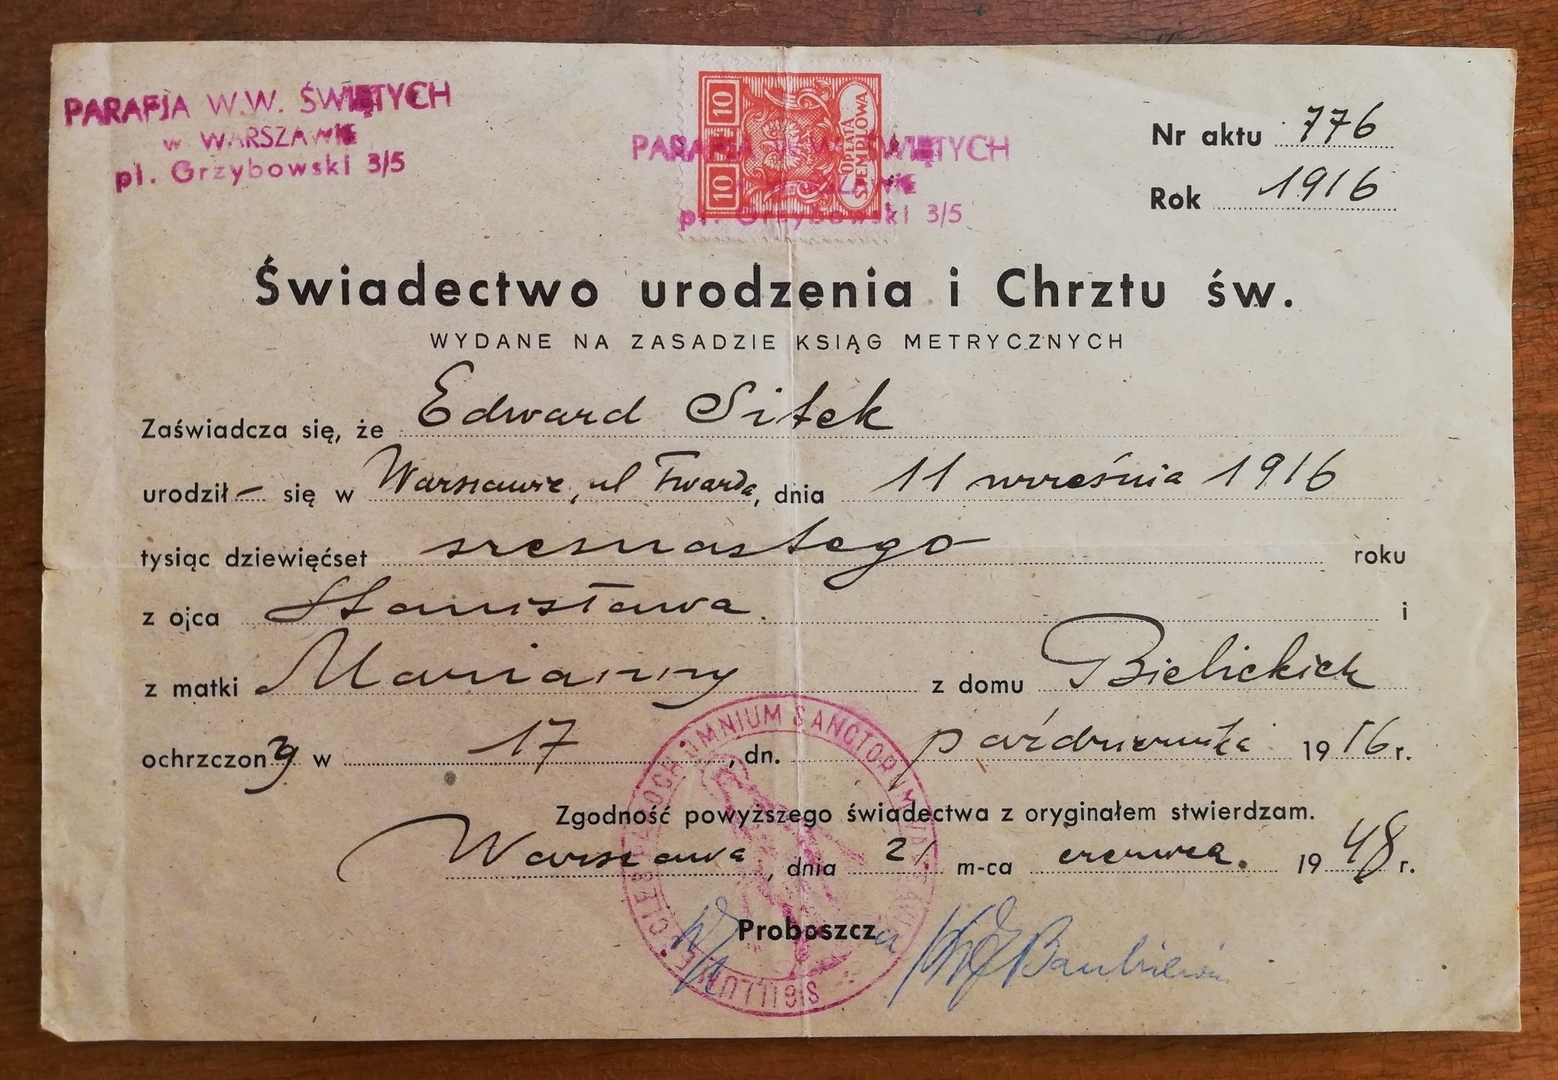 PARAFJA W.W. ŚWIĘTYCH
w WARSZAWIE
pl. Grzybowski 3/5
10 10
OPŁATA STEMPLOWA
PARAFJA W.W. ŚWIĘTYCH
w WARSZAWIE
pl. Grzybowski 3/5
Nr aktu 776
Rok 1916
Świadectwo urodzenia i Chrztu św.
WYDANE NA ZASADZIE KSIĄG METRYCZNYCH
Zaświadcza się, że Edward Sitek
urodził – się w Warszawie, ul Twarda, dnia 11 września 1916
tysiąc dziewięćset szesnastego roku
z ojca Stanisława i
z matki Marianny z domu Bielickich
ochrzczony w 17, dn. października 1916 r.
Zgodność powyższego świadectwa z oryginałem stwierdzam.
Warszawa, dnia 21 m-ca czerwca. 1948 r.
Proboszcz
SIGILLUM ECCLES OMNIUM SANCTORUM